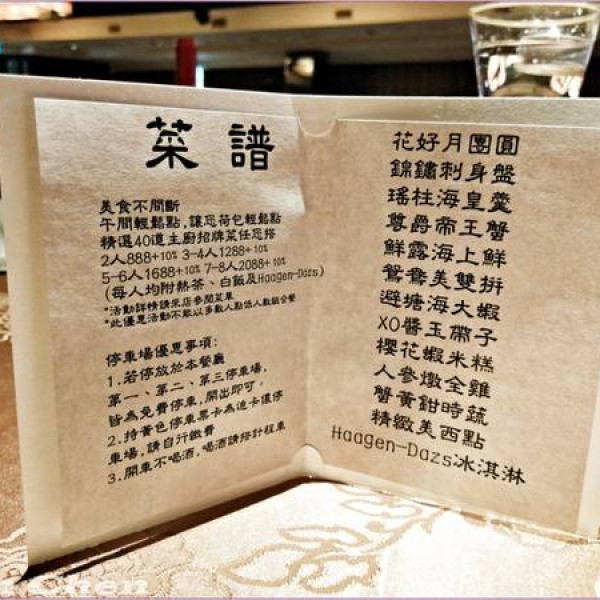 菜譜
美食不間斷
午間輕鬆點,讓您荷包輕鬆點
精選40道主廚招牌菜任您搭
2人888+10% 3-4人1288+10%
5-6人1688+10% 7-8人2088+10%
(每人均附熱茶、白飯及Haagen-Dazs)
*活動詳情請來店參閱菜單
*此優惠活動不能以多數人點低人數組合餐
停車場優惠事項:
1.若停放於本餐廳
第一、第二、第三停車場,
皆為免費停車,開出即可。
2.持黃色停車票卡為迪卡儂停
車場,請自行繳費
3.開車不喝酒,喝酒請搭計程車
花好月團圓
錦鏽刺身盤
瑤柱海皇羹
尊爵帝王蟹
鮮露海上鮮
鴛鴦美雙拼
避塘海大蝦
XO醬玉帶子
櫻花蝦米糕
人參燉全雞
蟹黃鉗時蔬
精緻美西點
Haagen-Dazs冰淇淋
Chen